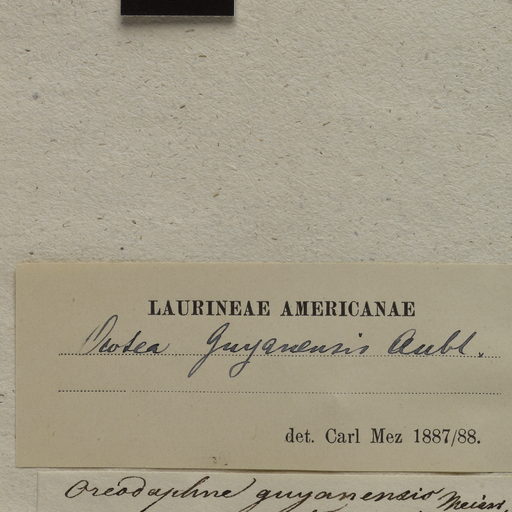 LAURINEAE AMERICANAE
Ocotea Guyanensis Aubl.
det. Carl Mez 1887/88.
Oreodaphne guyanensis Meissn.